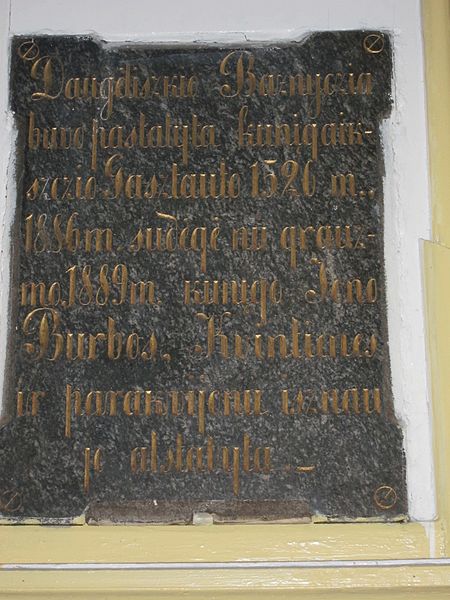 Daugėliszkio Bažnyczia
buvo pastatyta kunigaik-
szczio Gasztauto 1526 m.,
1886m. sudegė nu grauz-
mo, 1889m. kunįgo Jono
Burbos, Kvintienes
ir parakvijonu isznau
je atstatyta._